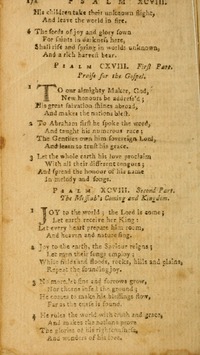 172 P S A L M XCVIII.
His children take their unknown flight,
And leave the world in fire.
6 The seeds of joy and glory sown
For saints in darkness here,
Shall rise and spring in worlds unknown,
And a rich harvest bear.
P S A L M CXVIII. First Part.
Praise for the Gospel.
1 TO our almighty Maker, God,
New honours be address'd;
His great salvation shines abroad,
And makes the nations blest.
2 To Abraham first he spoke the word,
And taught his numerous race;
The Gentiles own him sovereign Lord,
And learn to trust his grace.
3 Let the whole earth his love proclaim
With all their different tongues;
And spread the honour of his name
In melody and songs.
P S A L M XCVIII. Second Part.
The Messiah's Coming and Kingdom.
1 JOY to the world; the Lord is come;
Let earth receive her King:
Let every heart prepare him room,
And heaven and nature sing.
2 Joy to the earth, the Saviour reigns;
Let men their songs employ;
While fields and floods, rocks, hills and plains,
Repeat the sounding joy.
3 No more let sins and sorrows grow,
Nor thorns infest the ground;
He comes to make his blessings flow,
Far as the curse is found.
4 He rules the world with truth and grace,
And makes the nations prove
The glories of his righteousness,
And wonders of his love.